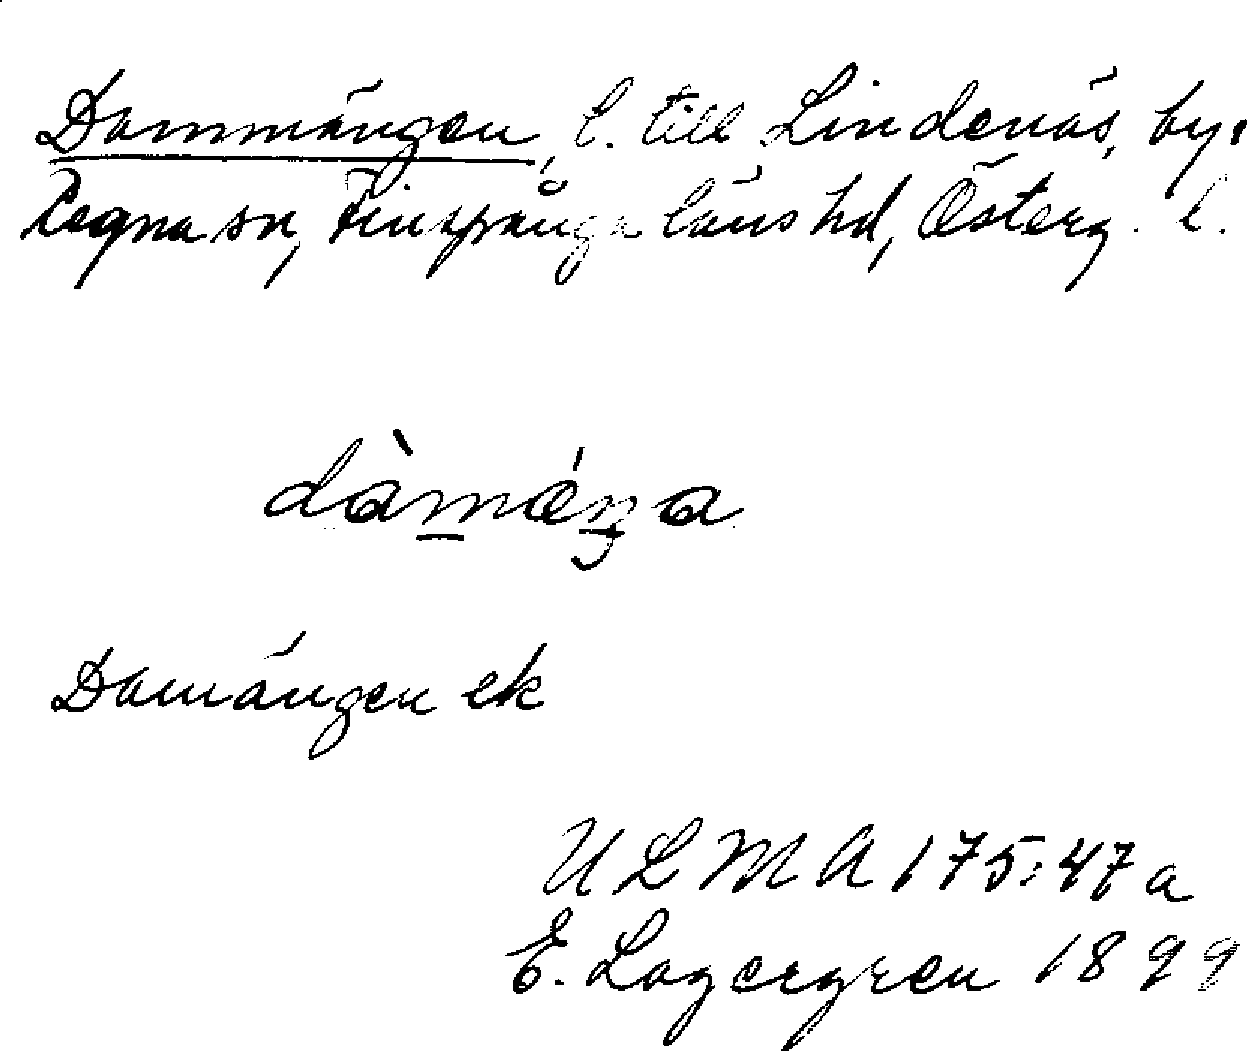 Dammängen, l. till Lindenäs, by.
Regna sn, Finspånga läns hd, Österg. l.
dàmǽŋa
Damängen ek
ULMA 175:47a
E. Lagergren 1899